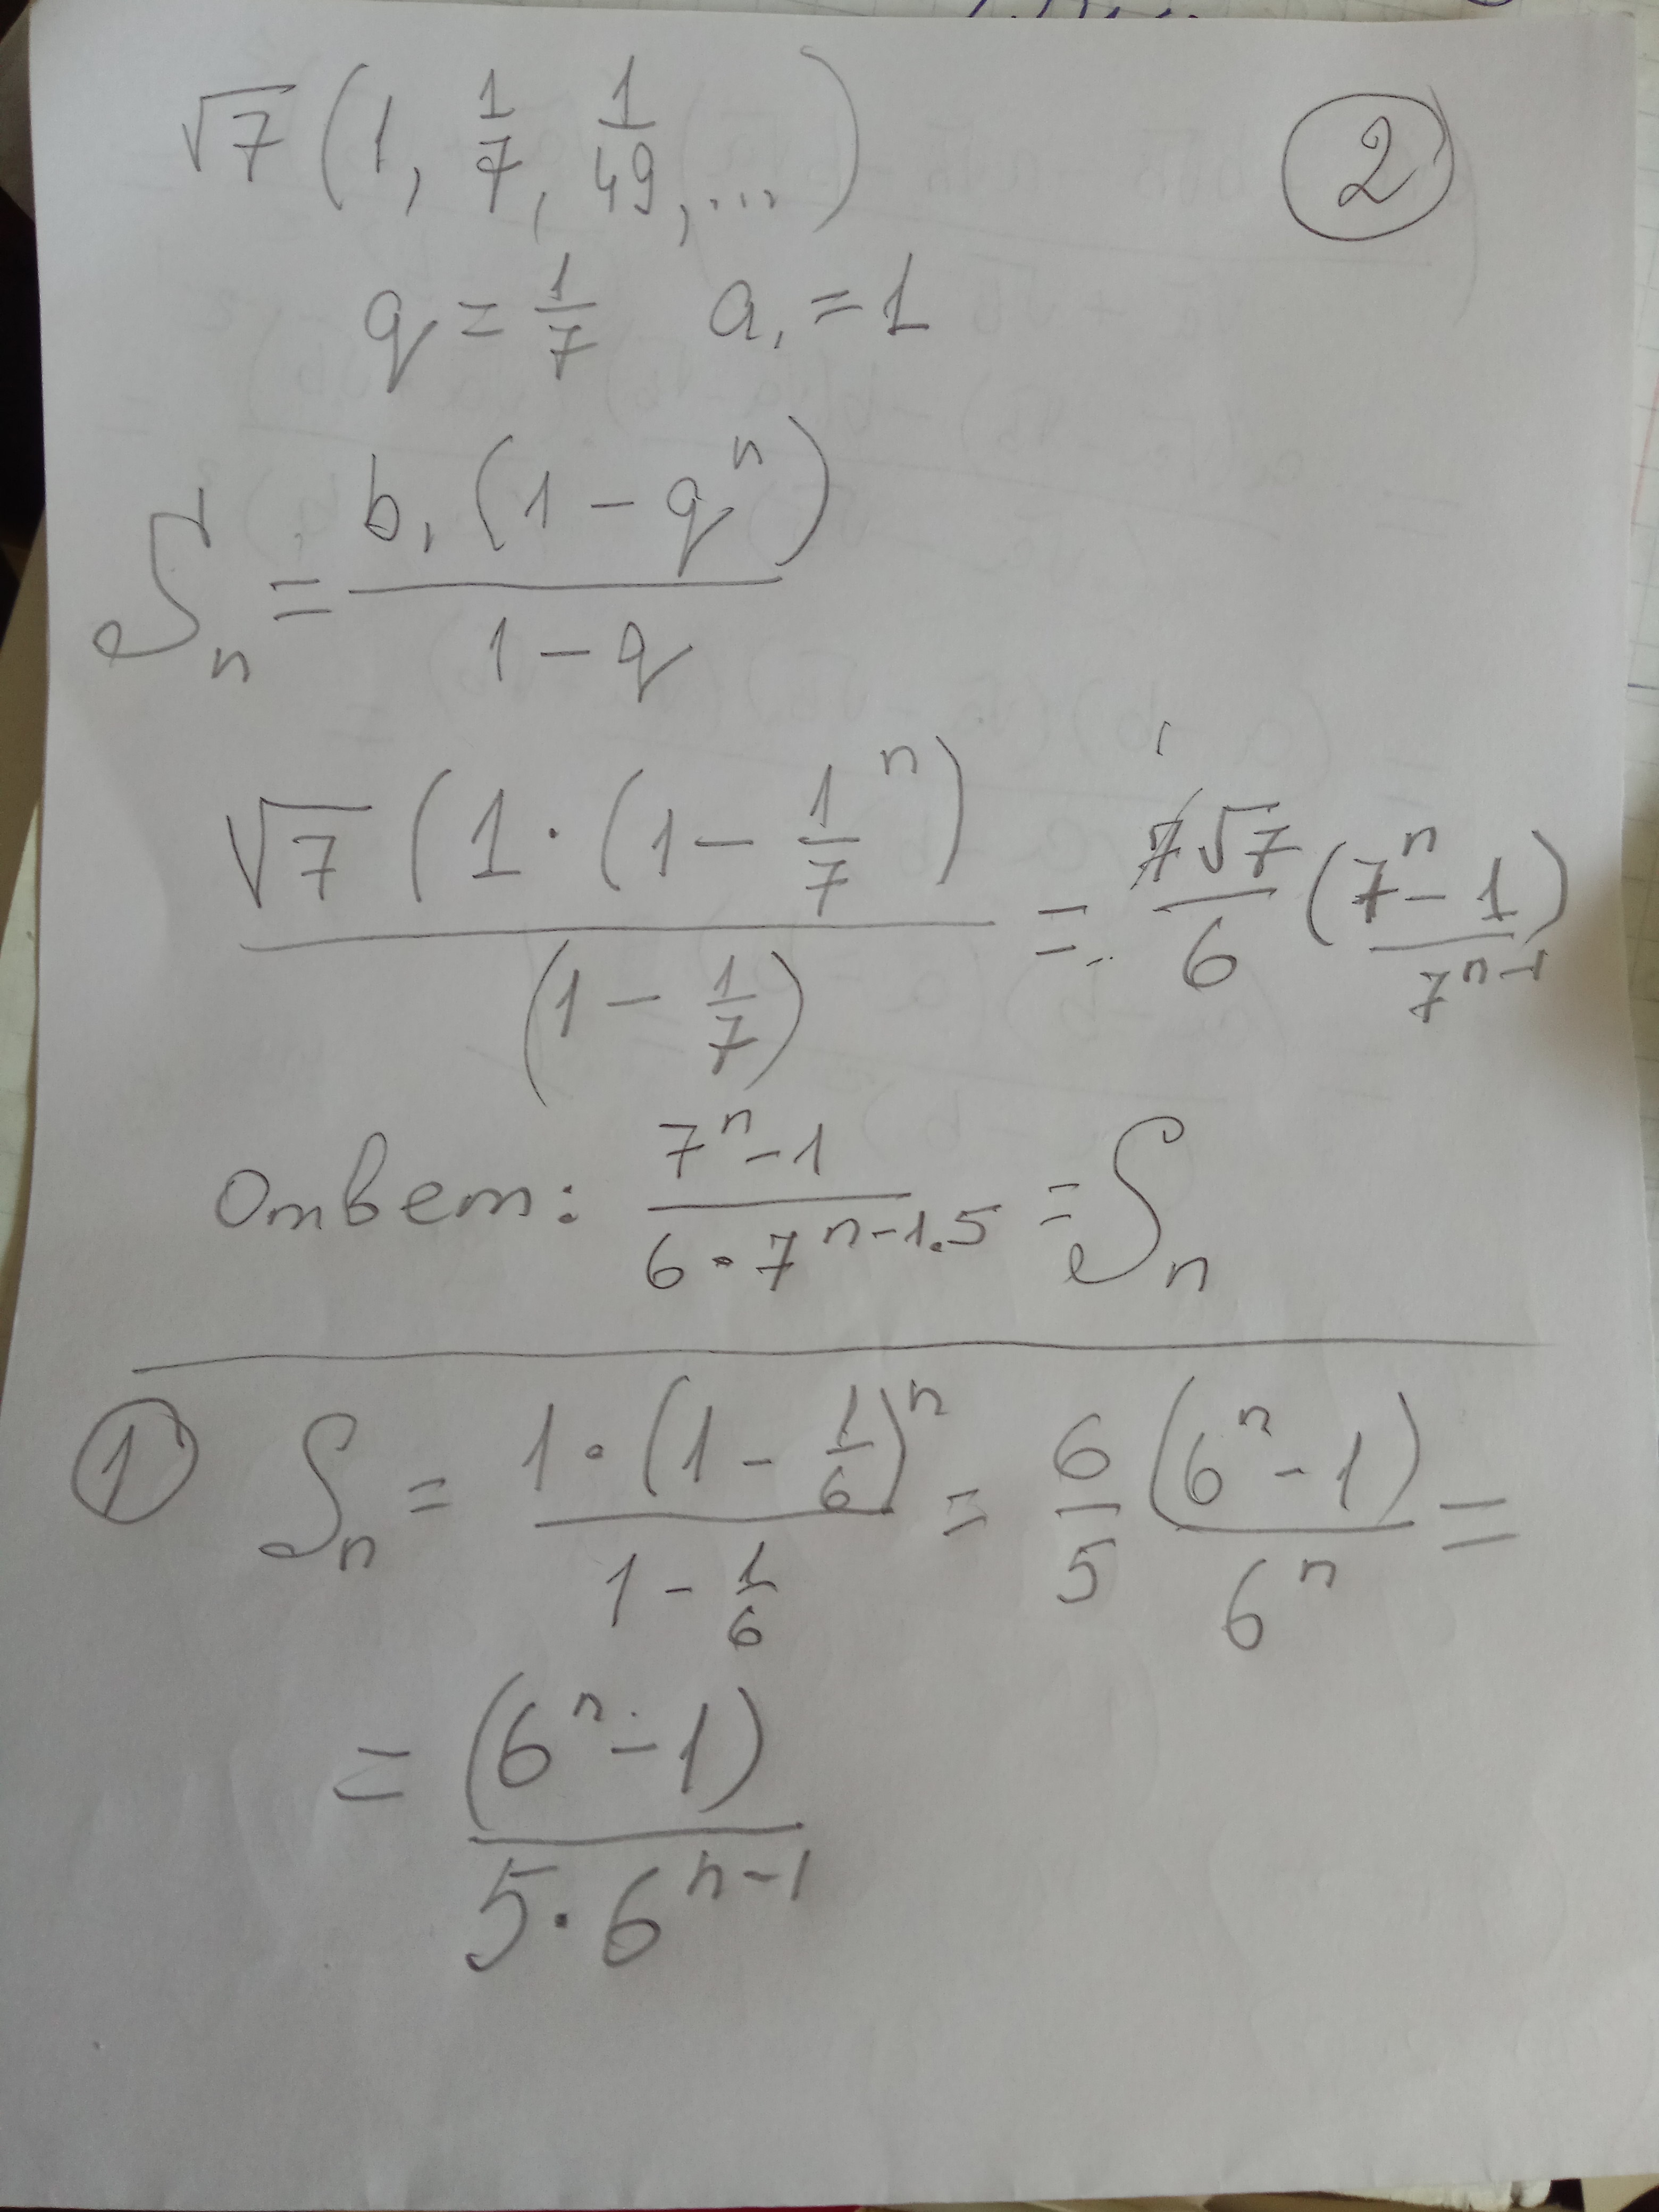 √7 (1, 1/7, 1/49, ...) ②
q = 1/7 a₁ = 1
Sₙ = b₁ (1 - qⁿ) / (1 - q)
√7 (1 · (1 - 1/7ⁿ) / (1 - 1/7) = 7√7/6 (7ⁿ - 1)/7ⁿ⁻¹
Ответ: (7ⁿ - 1) / (6 · 7ⁿ⁻¹·⁵) = Sₙ
① Sₙ = 1 · (1 - 1/6)ⁿ / (1 - 1/6) = 6/5 (6ⁿ - 1)/6ⁿ =
= (6ⁿ - 1) / (5 · 6ⁿ⁻¹)